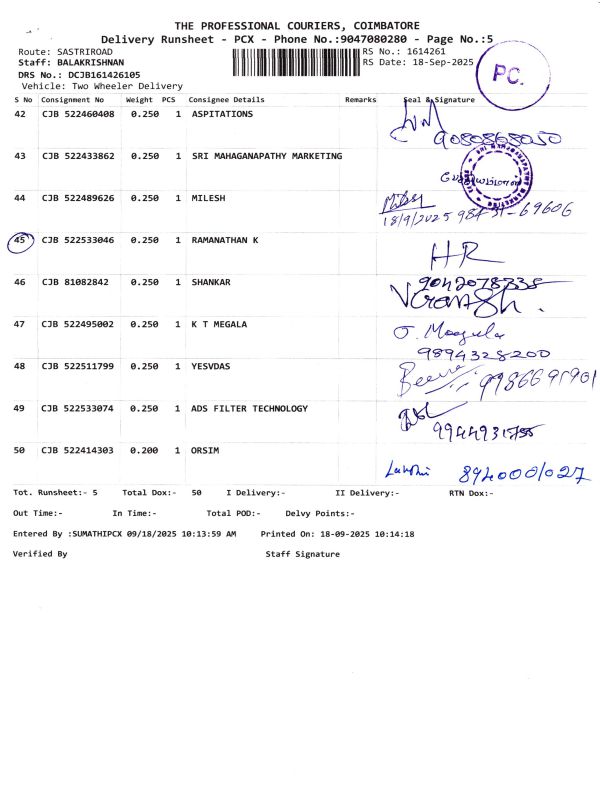 THE PROFESSIONAL COURIERS, COIMBATORE
Delivery Runsheet - PCX - Phone No.:9047080280 - Page No.:5
Route: SASTRIROAD
RS No.: 1614261
Staff: BALAKRISHNAN
RS Date: 18-Sep-2025
DRS No.: DCJB161426105
Vehicle: Two Wheeler Delivery
PC.
S No Consignment No Weight PCS Consignee Details Remarks Seal & Signature
42 CJB 522460408 0.250 1 ASPITATIONS
9080868050
43 CJB 522433862 0.250 1 SRI MAHAGANAPATHY MARKETING
SRI MAHAGANAPATHY MARKETING
44 CJB 522489626 0.250 1 MILESH
18/9/2025 98431-69606
45 CJB 522533046 0.250 1 RAMANATHAN K
HR
46 CJB 81082842 0.250 1 SHANKAR
9042078338
47 CJB 522495002 0.250 1 K T MEGALA
9894328200
48 CJB 522511799 0.250 1 YESVDAS
49 CJB 522533074 0.250 1 ADS FILTER TECHNOLOGY
50 CJB 522414303 0.200 1 ORSIM
Tot. Runsheet:- 5 Total Dox:- 50 I Delivery:- II Delivery:- RTN Dox:-
Out Time:- In Time:- Total POD:- Delvy Points:-
Entered By :SUMATHIPCX 09/18/2025 10:13:59 AM Printed On: 18-09-2025 10:14:18
Verified By Staff Signature